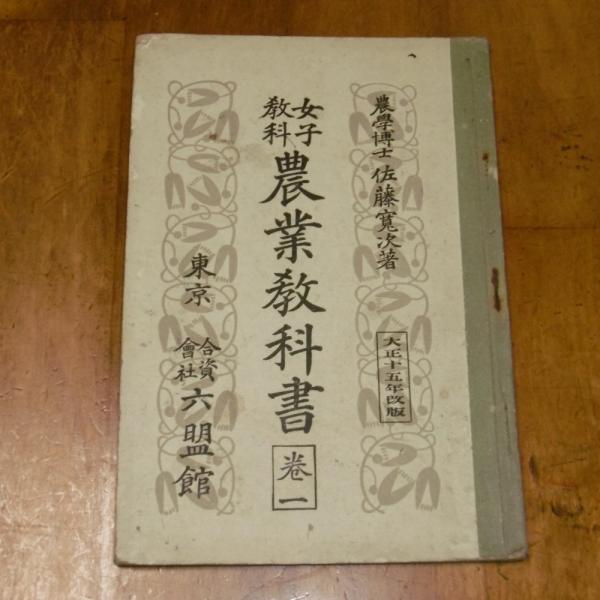 農學博士 佐藤寬次著
大正十五年改版
女子
教科
農業教科書
卷一
東京
合資
會社
六盟館